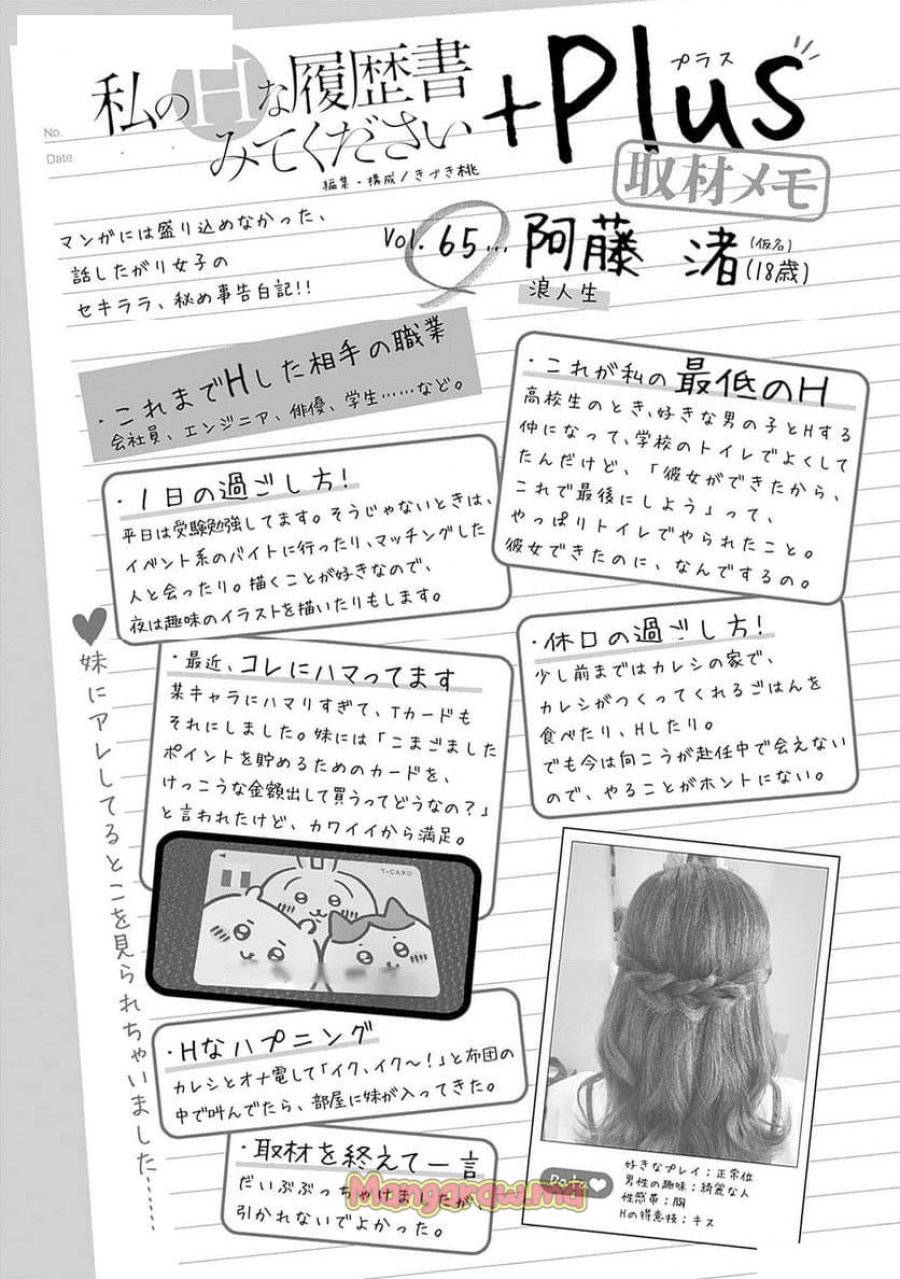 No.
Date
私のHな履歴書
みてください
+Plus
プラス
編集・構成/きづき桃
取材メモ
マンガには盛り込めなかった、
話したがり女子の
セキララ、秘め事告白記!!
Vol. 65...
阿藤 渚
(仮名)
(18歳)
浪人生
・これまでHした相手の職業
会社員、エンジニア、俳優、学生……など。
・これが私の最低のH
・1日の過ごし方!
平日は受験勉強してます。そうじゃないときは、
イベント系のバイトに行ったり、マッチングした
人と会ったり。描くことが好きなので、
夜は趣味のイラストを描いたりもします。
・休日の過ごし方!
少し前まではカレシの家で、
カレシがつくってくれるごはんを
食べたり、Hしたり。
でも今は向こうが赴任中で会えない
ので、やることがホントにない。
・最近、コレにハマってます
某キャラにハマりすぎて、Tカードも
それにしました。妹には「こまごました
ポイントを貯めるためのカードを、
けっこうな金額出して買うってどうなの?」
と言われたけど、カワイイから満足。
T-CARD
♥妹にアレしてるとこを見られちゃいました……
・Hなハプニング
カレシとオナ電して「イク、イク〜!」と布団の
中で叫んでたら、部屋に妹が入ってきた。
・取材を終えて一言
だいぶぶっちゃけましたが、
引かれないでよかった。
Mangaraw.ma
好きなプレイ;正常位
男性の趣味;綺麗な人
性感帯;胸
Hの得意技;キス